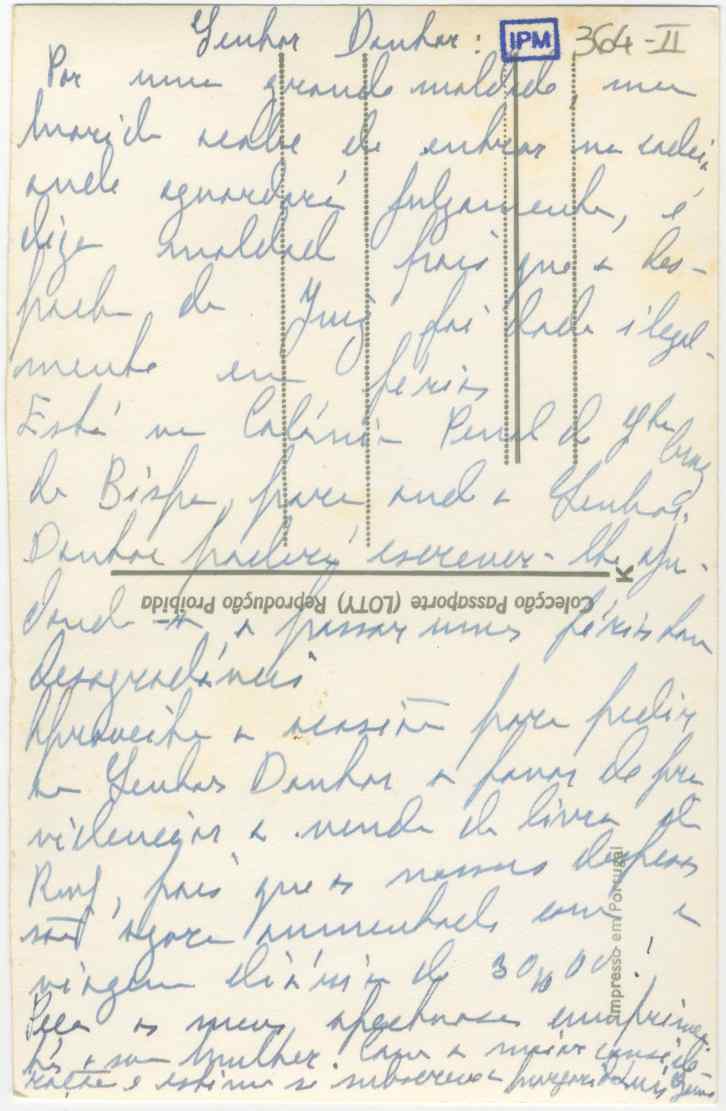 Senhor Doutor: IPM 364-II
Por uma grande maldade, meu
marido acaba de entrar na cadeia
onde aguardará julgamento, e
digo maldade pois que o des-
pacho do Juiz foi dado ilegal-
mente em férias
Está na Colónia Penal de Stª Cruz
do Bispo, para onde o Senhor
Doutor poderá escrever-lhe aju-
dando-o a passar umas férias tam
desagradáveis
Aproveito a ocasião para pedir
ao Senhor Doutor o favor de pro
videnciar a venda do livro do
pois que as nossas despesas
são agora aumentadas com a
viagem diária de 30$00!
Peço os meus
a sua Mulher. Com a maior conside-
ração e estima se subscreve
Colecção Passaporte (LOTY) Reprodução Proibida
K
Impresso em Portugal